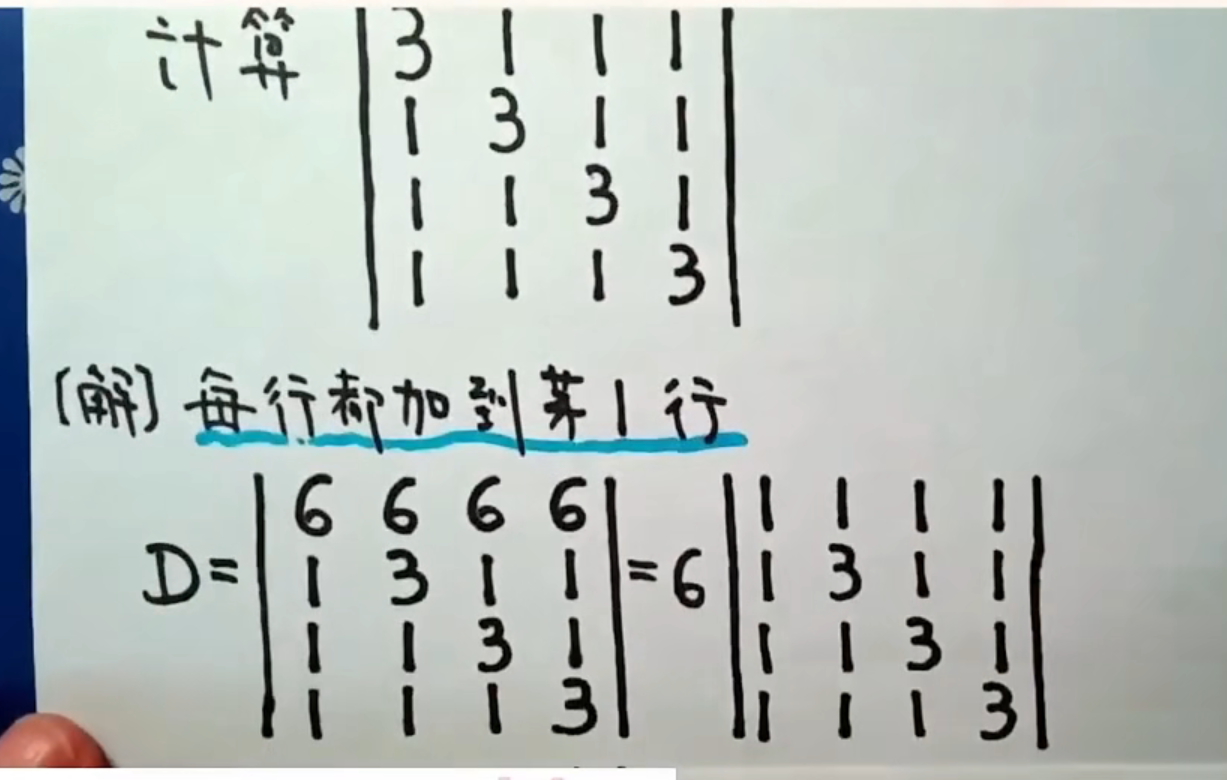 计算 | 3 1 1 1 |
| 1 3 1 1 |
| 1 1 3 1 |
| 1 1 1 3 |
[解] 每行都加到第1行
D = | 6 6 6 6 | = 6 | 1 1 1 1 |
| 1 3 1 1 | | 1 3 1 1 |
| 1 1 3 1 | | 1 1 3 1 |
| 1 1 1 3 | | 1 1 1 3 |